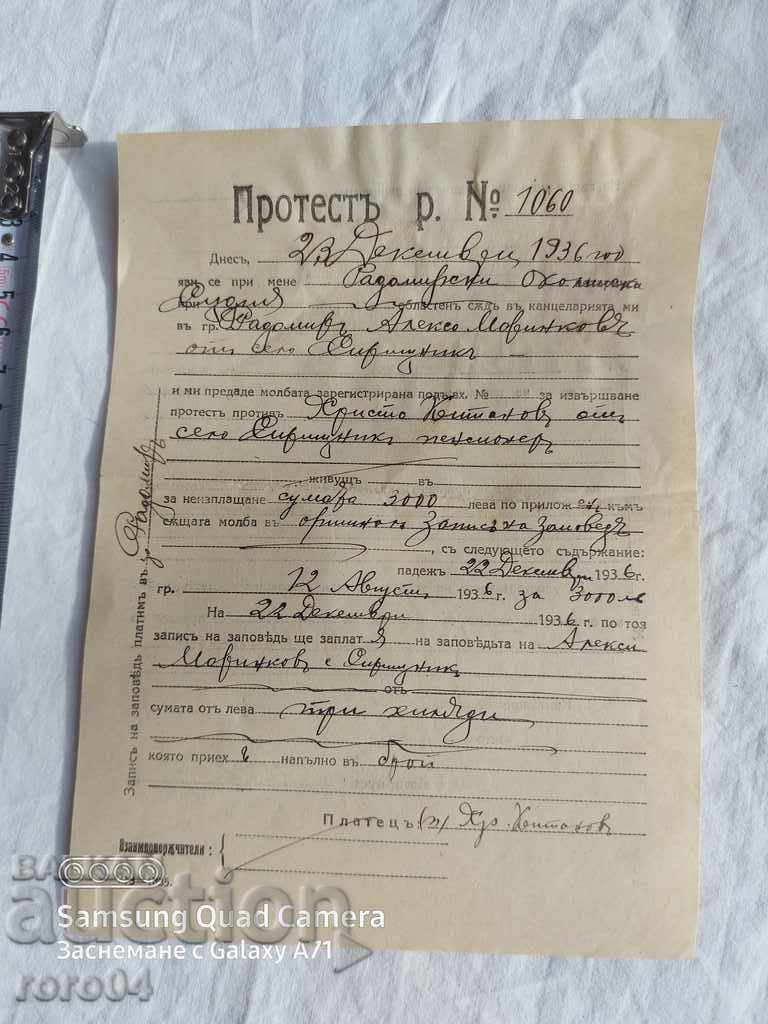 Протестъ р. № 1060
Днесъ, 23 Декемврий 1936 год
яви се при мене Радомирски Околийски
при Съдия областенъ сѫдъ въ канцеларията ми
въ гр. Радомиръ Алексо Маринковъ
отъ село
и ми предаде молбата зарегистрирана подъ вх. № за извършване
протестъ противъ Христо отъ
село пенсионеръ
живущъ въ
за неизплащане сумата 3000 лева по прилож ен. къмъ
сѫщата молба въ оригиналъ Записъ на Заповедь
, съ следующето съдържание:
падежъ 22 Декемврий 1936 г.
гр. 12 Августъ 1936 г. за 3000 лв
На 22 Декемврий 1936 г. по тоя
записъ на заповѣдь ще заплатя на заповѣдьта на Алекси
Маринковъ с
отъ
сумата отъ лева три хиляди
която приехъ напълно въ брой
Платецъ: (п) Хр.
Взаимопоръчители:
Записъ на заповѣдь платимъ въ гр Радомиръ
auction
Samsung Quad Camera
Заснемане с Galaxy A71
roro04